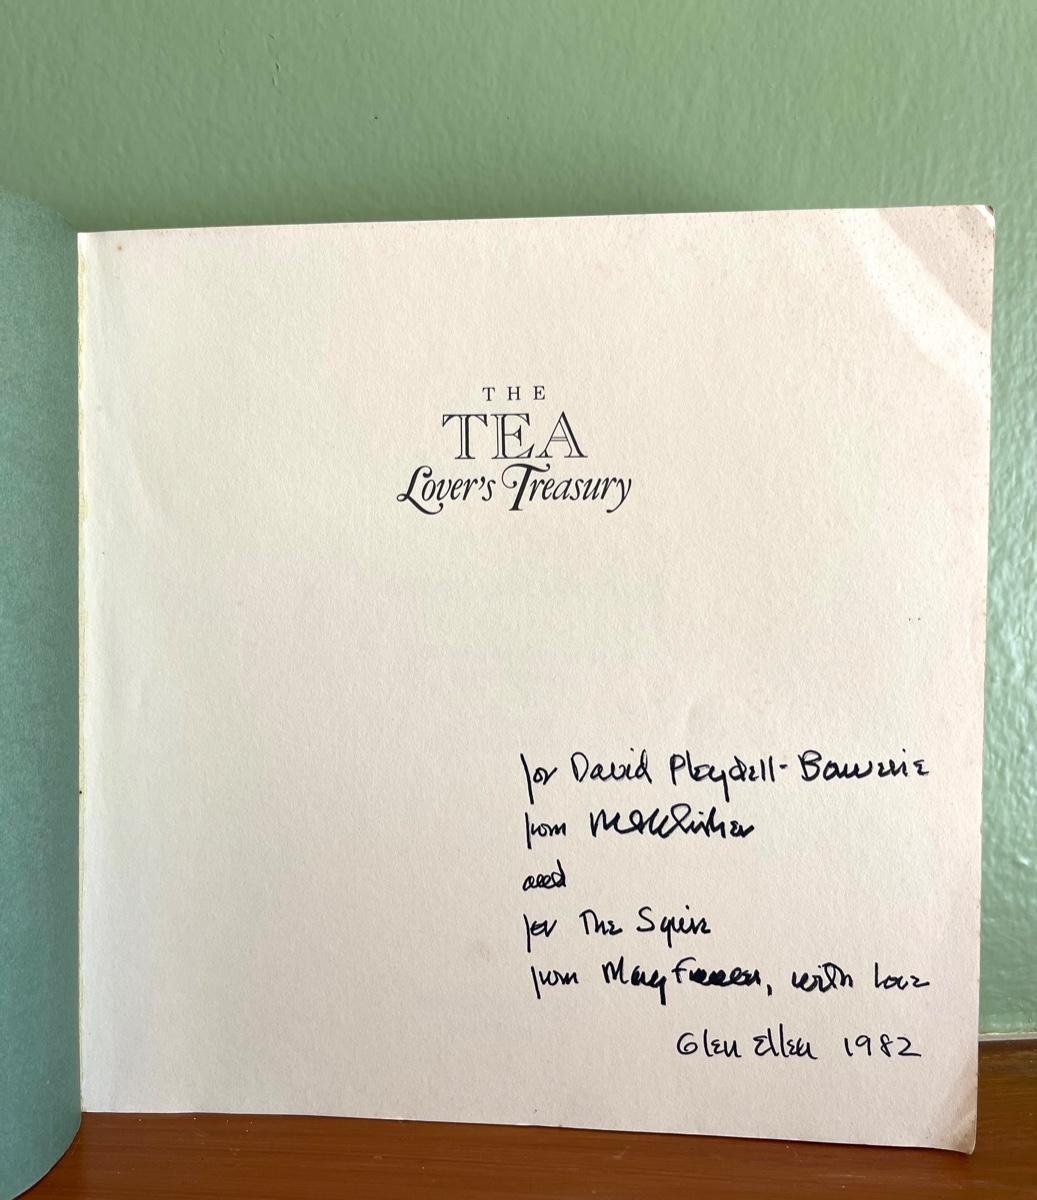 THE
TEA
Lover's Treasury
for David Pleydell-Bouverie
from MFKFisher
and
for The Squire
from Mary Frances, with love
Glen Ellen 1982